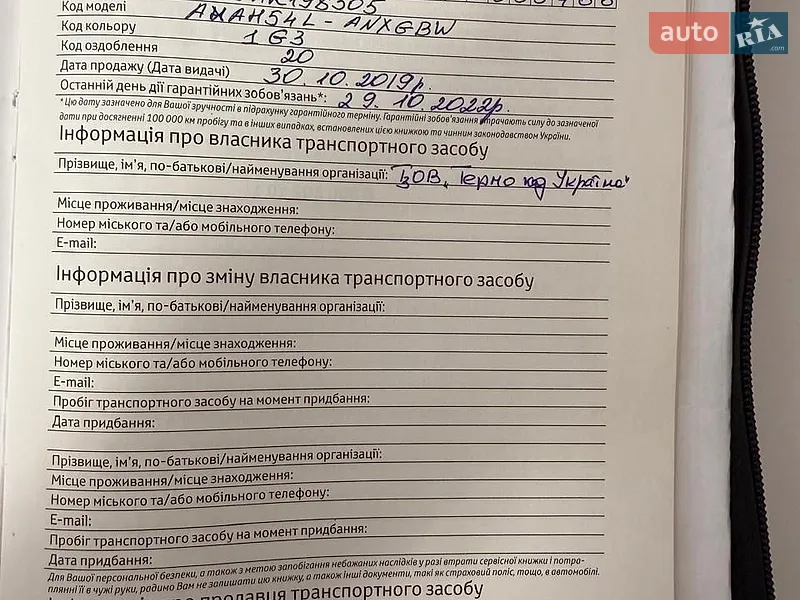 auto RIA .com
Код моделі AXAH54L-ANXGBW
Код кольору 1G3
Код оздоблення 20
Дата продажу (Дата видачі) 30.10.2019р.
Останній день дії гарантійних зобов'язань*: 29.10.2022р.
*Цю дату зазначено для Вашої зручності в підрахунку гарантійного терміну. Гарантійні зобов'язання втрачають силу до зазначеної
дати при досягненні 100 000 км пробігу та в інших випадках, встановлених цією книжкою та чинним законодавством України.
Інформація про власника транспортного засобу
Прізвище, ім'я, по-батькові/найменування організації: ТЗОВ „Термо Україна"
Місце проживання/місце знаходження:
Номер міського та/або мобільного телефону:
E-mail:
Інформація про зміну власника транспортного засобу
Прізвище, ім'я, по-батькові/найменування організації:
Місце проживання/місце знаходження:
Номер міського та/або мобільного телефону:
E-mail:
Пробіг транспортного засобу на момент придбання:
Дата придбання:
Прізвище, ім'я, по-батькові/найменування організації:
Місце проживання/місце знаходження:
Номер міського та/або мобільного телефону:
E-mail:
Пробіг транспортного засобу на момент придбання:
Дата придбання:
Для Вашої персональної безпеки, а також з метою запобігання небажаних наслідків у разі втрати сервісної книжки і потра-
пляння її в чужі руки, радимо Вам не залишати цю книжку, а також інші документи, такі як страховий поліс, тощо, в автомобілі.
продавця транспортного засобу